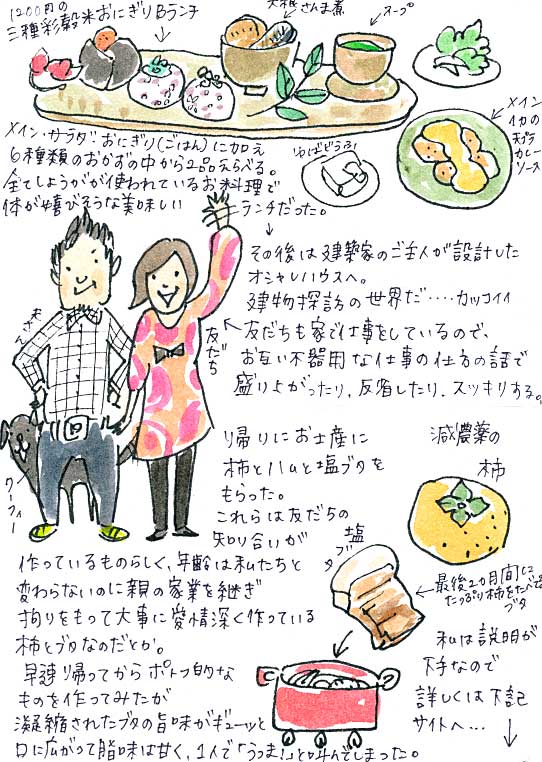 1200円の
三種彩穀米おにぎりBランチ
大根とさんま煮
スープ
メイン・サラダ・おにぎり(ごはん)に加え
6種類のおかずの中から2品えらべる。
全てしょうがが使われているお料理で
体が嬉びそうな美味しい
ランチだった。
ゆばどうふ
メイン
イカの
天ぷら
カレー
ソース
その後は建築家のご主人が設計した
オシャレハウスへ。
建物探訪の世界だ‥‥カッコイイ
友だちも家で仕事をしているので、
お互い不器用な仕事の仕方の話で
盛り上がったり、反省したり、スッキリする。
友だち
ワーフィー
帰りにお土産に
柿とハムと塩ブタを
もらった。
これらは友だちの
知り合いが
作っているものらしく、年齢は私たちと
変わらないのに親の家業を継ぎ
拘りをもって大事に愛情深く作っている
柿とブタなのだとか。
早速帰ってからポトフ的な
ものを作ってみたが
凝縮されたブタの旨味がギューッと
口に広がって脂味は甘く、1人で「うっま!」と叫んでしまった。
減農薬の
柿
塩ブタ
最後2ヵ月間に
たっぷり柿をたべた
ブタ
私は説明が
下手なので
詳しくは下記
サイトへ…